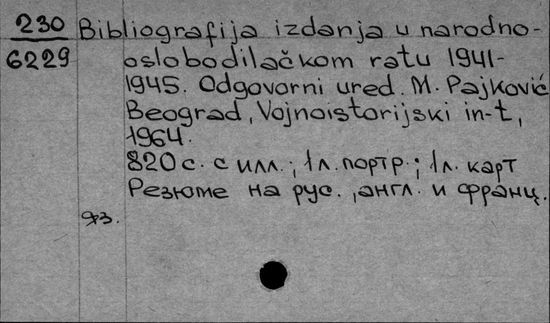 230 Bibliografija izdanja u narodno-
6229 oslobodilačkom ratu 1941-
1945. Odgovorni ured. M. Pajković
Beograd, Vojnoistorijski in-t,
1964.
820 с. с илл.; 1л. портр.; 1л. карт
Резюме на рус., англ. и франц.